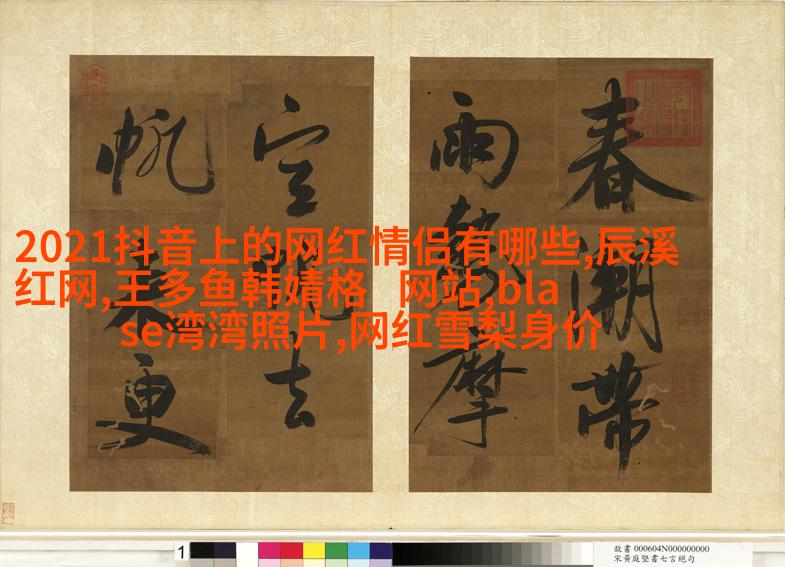 春潮帶
雨摩
去
帆未更
2021抖音上的网红情侣有哪些,辰溪
红网,王多鱼韩婧格 网站,bla
se湾湾照片,网红雪梨身价
1
故書 000604N000000000
宋黃庭堅書七言絕句